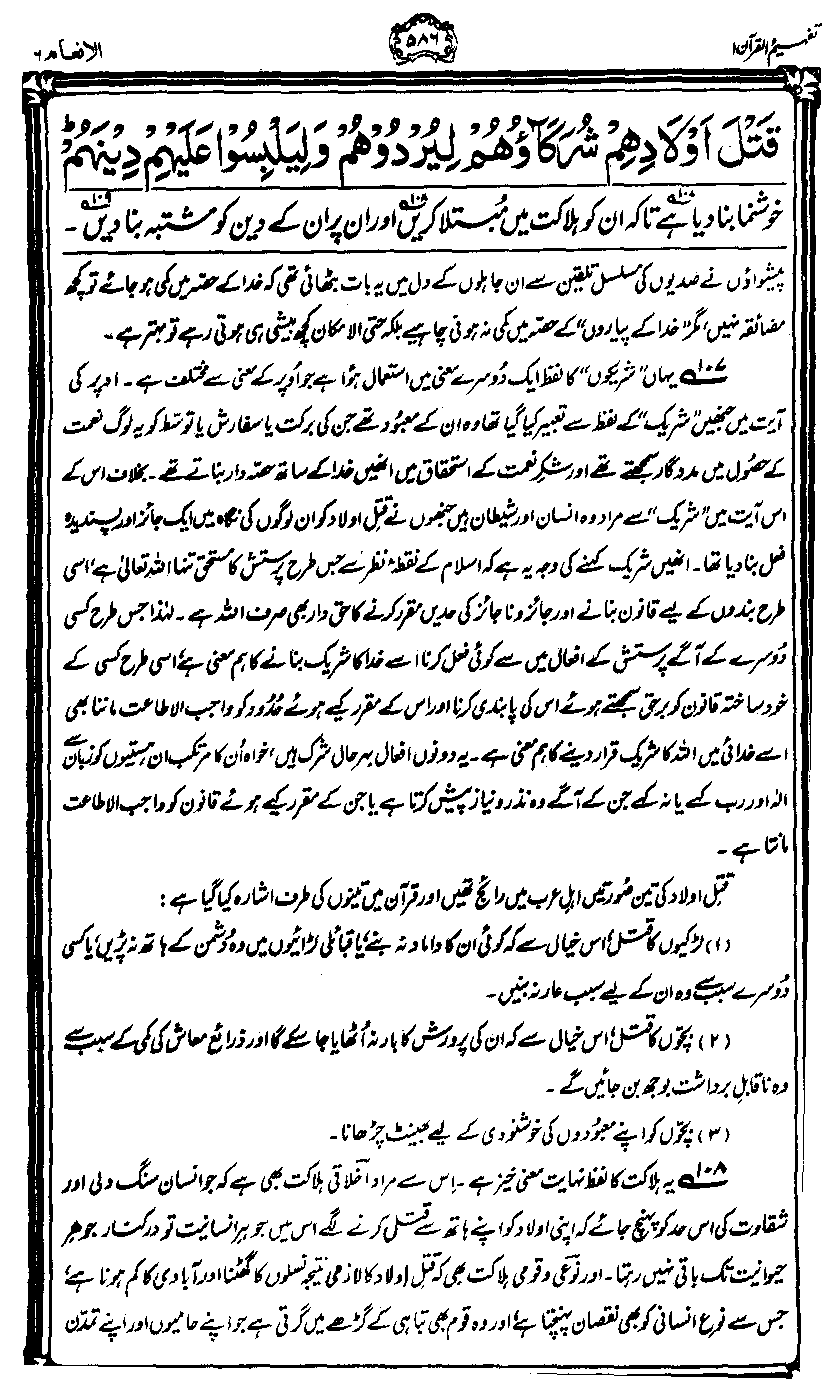 تفہیم القرآن ۱
۵۸۶
الانعام ۶
قَتْلَ اَوْلَادِهِمْ شُرَكَآؤُهُمْ لِيُرْدُوْهُمْ وَلِيَلْبِسُوْا عَلَيْهِمْ دِيْنَهُمْ ؕ
خوشنما بنا دیا ہے ۱۰۷ تاکہ ان کو ہلاکت میں مبتلا کریں ۱۰۸ اور ان پر ان کے دین کو مشتبہ بنا دیں ۱۰۹۔
پیشواؤں نے صدیوں کی مسلسل تلقین سے ان جاہلوں کے دل میں یہ بات بٹھائی تھی کہ خدا کے حصہ میں کمی ہو جائے تو کچھ
مضائقہ نہیں، مگر ”خدا کے پیاروں“ کے حصہ میں کمی نہ ہونی چاہیے بلکہ حتی الامکان کچھ بیشی ہی ہوتی رہے تو بہتر ہے۔
۱۰۷ یہاں ”شریکوں“ کا لفظ ایک دُوسرے معنی میں استعمال ہوا ہے جو اُوپر کے معنی سے مختلف ہے۔ اوپر کی
آیت میں جنھیں ”شریک“ کے لفظ سے تعبیر کیا گیا تھا وہ ان کے معبود تھے جن کی برکت یا سفارش یا توسّط کو یہ لوگ نعمت
کے حصول میں مددگار سمجھتے تھے اور شکرِ نعمت کے استحقاق میں انھیں خدا کے ساتھ حصہ دار بناتے تھے۔ بخلاف اس کے
اس آیت میں ”شریک“ سے مراد وہ انسان اور شیطان ہیں جنھوں نے قتلِ اولاد کو ان لوگوں کی نگاہ میں ایک جائز اور پسندیدہ
فعل بنا دیا تھا۔ انھیں شریک کہنے کی وجہ یہ ہے کہ اسلام کے نقطۂ نظر سے جس طرح پرستش کا مستحق تنہا اللہ تعالیٰ ہے، اسی
طرح بندوں کے لیے قانون بنانے اور جائز و ناجائز کی حدیں مقرر کرنے کا حق دار بھی صرف اللہ ہے۔ لہٰذا جس طرح کسی
دُوسرے کے آگے پرستش کے افعال میں سے کوئی فعل کرنا اسے خدا کا شریک بنانے کا ہم معنی ہے، اسی طرح کسی کے
خود ساختہ قانون کو برحق سمجھتے ہوئے اس کی پابندی کرنا اور اس کے مقرر کیے ہوئے حُدود کو واجب الاطاعت ماننا بھی
اسے خدائی میں اللہ کا شریک قرار دینے کا ہم معنی ہے۔ یہ دونوں افعال بہرحال شرک ہیں، خواہ اُن کا مرتکب ان ہستیوں کو زبان سے
الٰہ اور رب کہے یا نہ کہے جن کے آگے وہ نذر و نیاز پیش کرتا ہے یا جن کے مقرر کیے ہوئے قانون کو واجب الاطاعت
مانتا ہے۔
قتلِ اولاد کی تین صُورتیں اہلِ عرب میں رائج تھیں اور قرآن میں تینوں کی طرف اشارہ کیا گیا ہے:
(۱) لڑکیوں کا قتل، اس خیال سے کہ کوئی ان کا داماد نہ بنے، یا قبائلی لڑائیوں میں وہ دُشمن کے ہاتھ نہ پڑیں، یا کسی
دُوسرے سبب سے وہ ان کے لیے سببِ عار نہ بنیں۔
(۲) بچّوں کا قتل، اس خیال سے کہ ان کی پرورش کا بار نہ اُٹھایا جا سکے گا اور ذرائعِ معاش کی کمی کے سبب سے
وہ ناقابلِ برداشت بوجھ بن جائیں گے۔
(۳) بچّوں کو اپنے معبُودوں کی خوشنودی کے لیے بھینٹ چڑھانا۔
۱۰۸ یہ ہلاکت کا لفظ نہایت معنی خیز ہے۔ اِس سے مراد اخلاقی ہلاکت بھی ہے کہ جو انسان سنگ دلی اور
شقاوت کی اس حد کو پہنچ جائے کہ اپنی اولاد کو اپنے ہاتھ سے قتل کرنے لگے اس میں جوہرِ انسانیت تو درکنار جوہرِ
حیوانیت تک باقی نہیں رہتا۔ اور نوعی و قومی ہلاکت بھی کہ قتلِ اولاد کا لازمی نتیجہ نسلوں کا گھٹنا اور آبادی کا کم ہونا ہے،
جس سے نوعِ انسانی کو بھی نقصان پہنچتا ہے، اور وہ قوم بھی تباہی کے گڑھے میں گرتی ہے جو اپنے حامیوں اور اپنے تمدّن